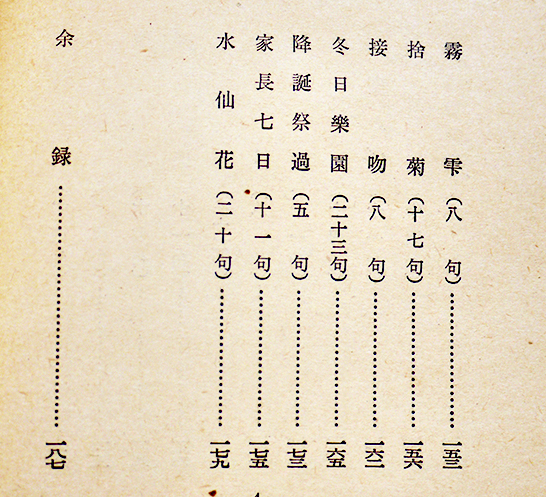 霧雫(八句)……………………一五三
捨菊(十七句)……………………一五六
接吻(八句)……………………一六二
冬日樂園(二十三句)……………………一六五
降誕祭過(五句)……………………一七三
家長七日(十一句)……………………一七五
水仙花(二十句)……………………一七九
余録……………………一八七